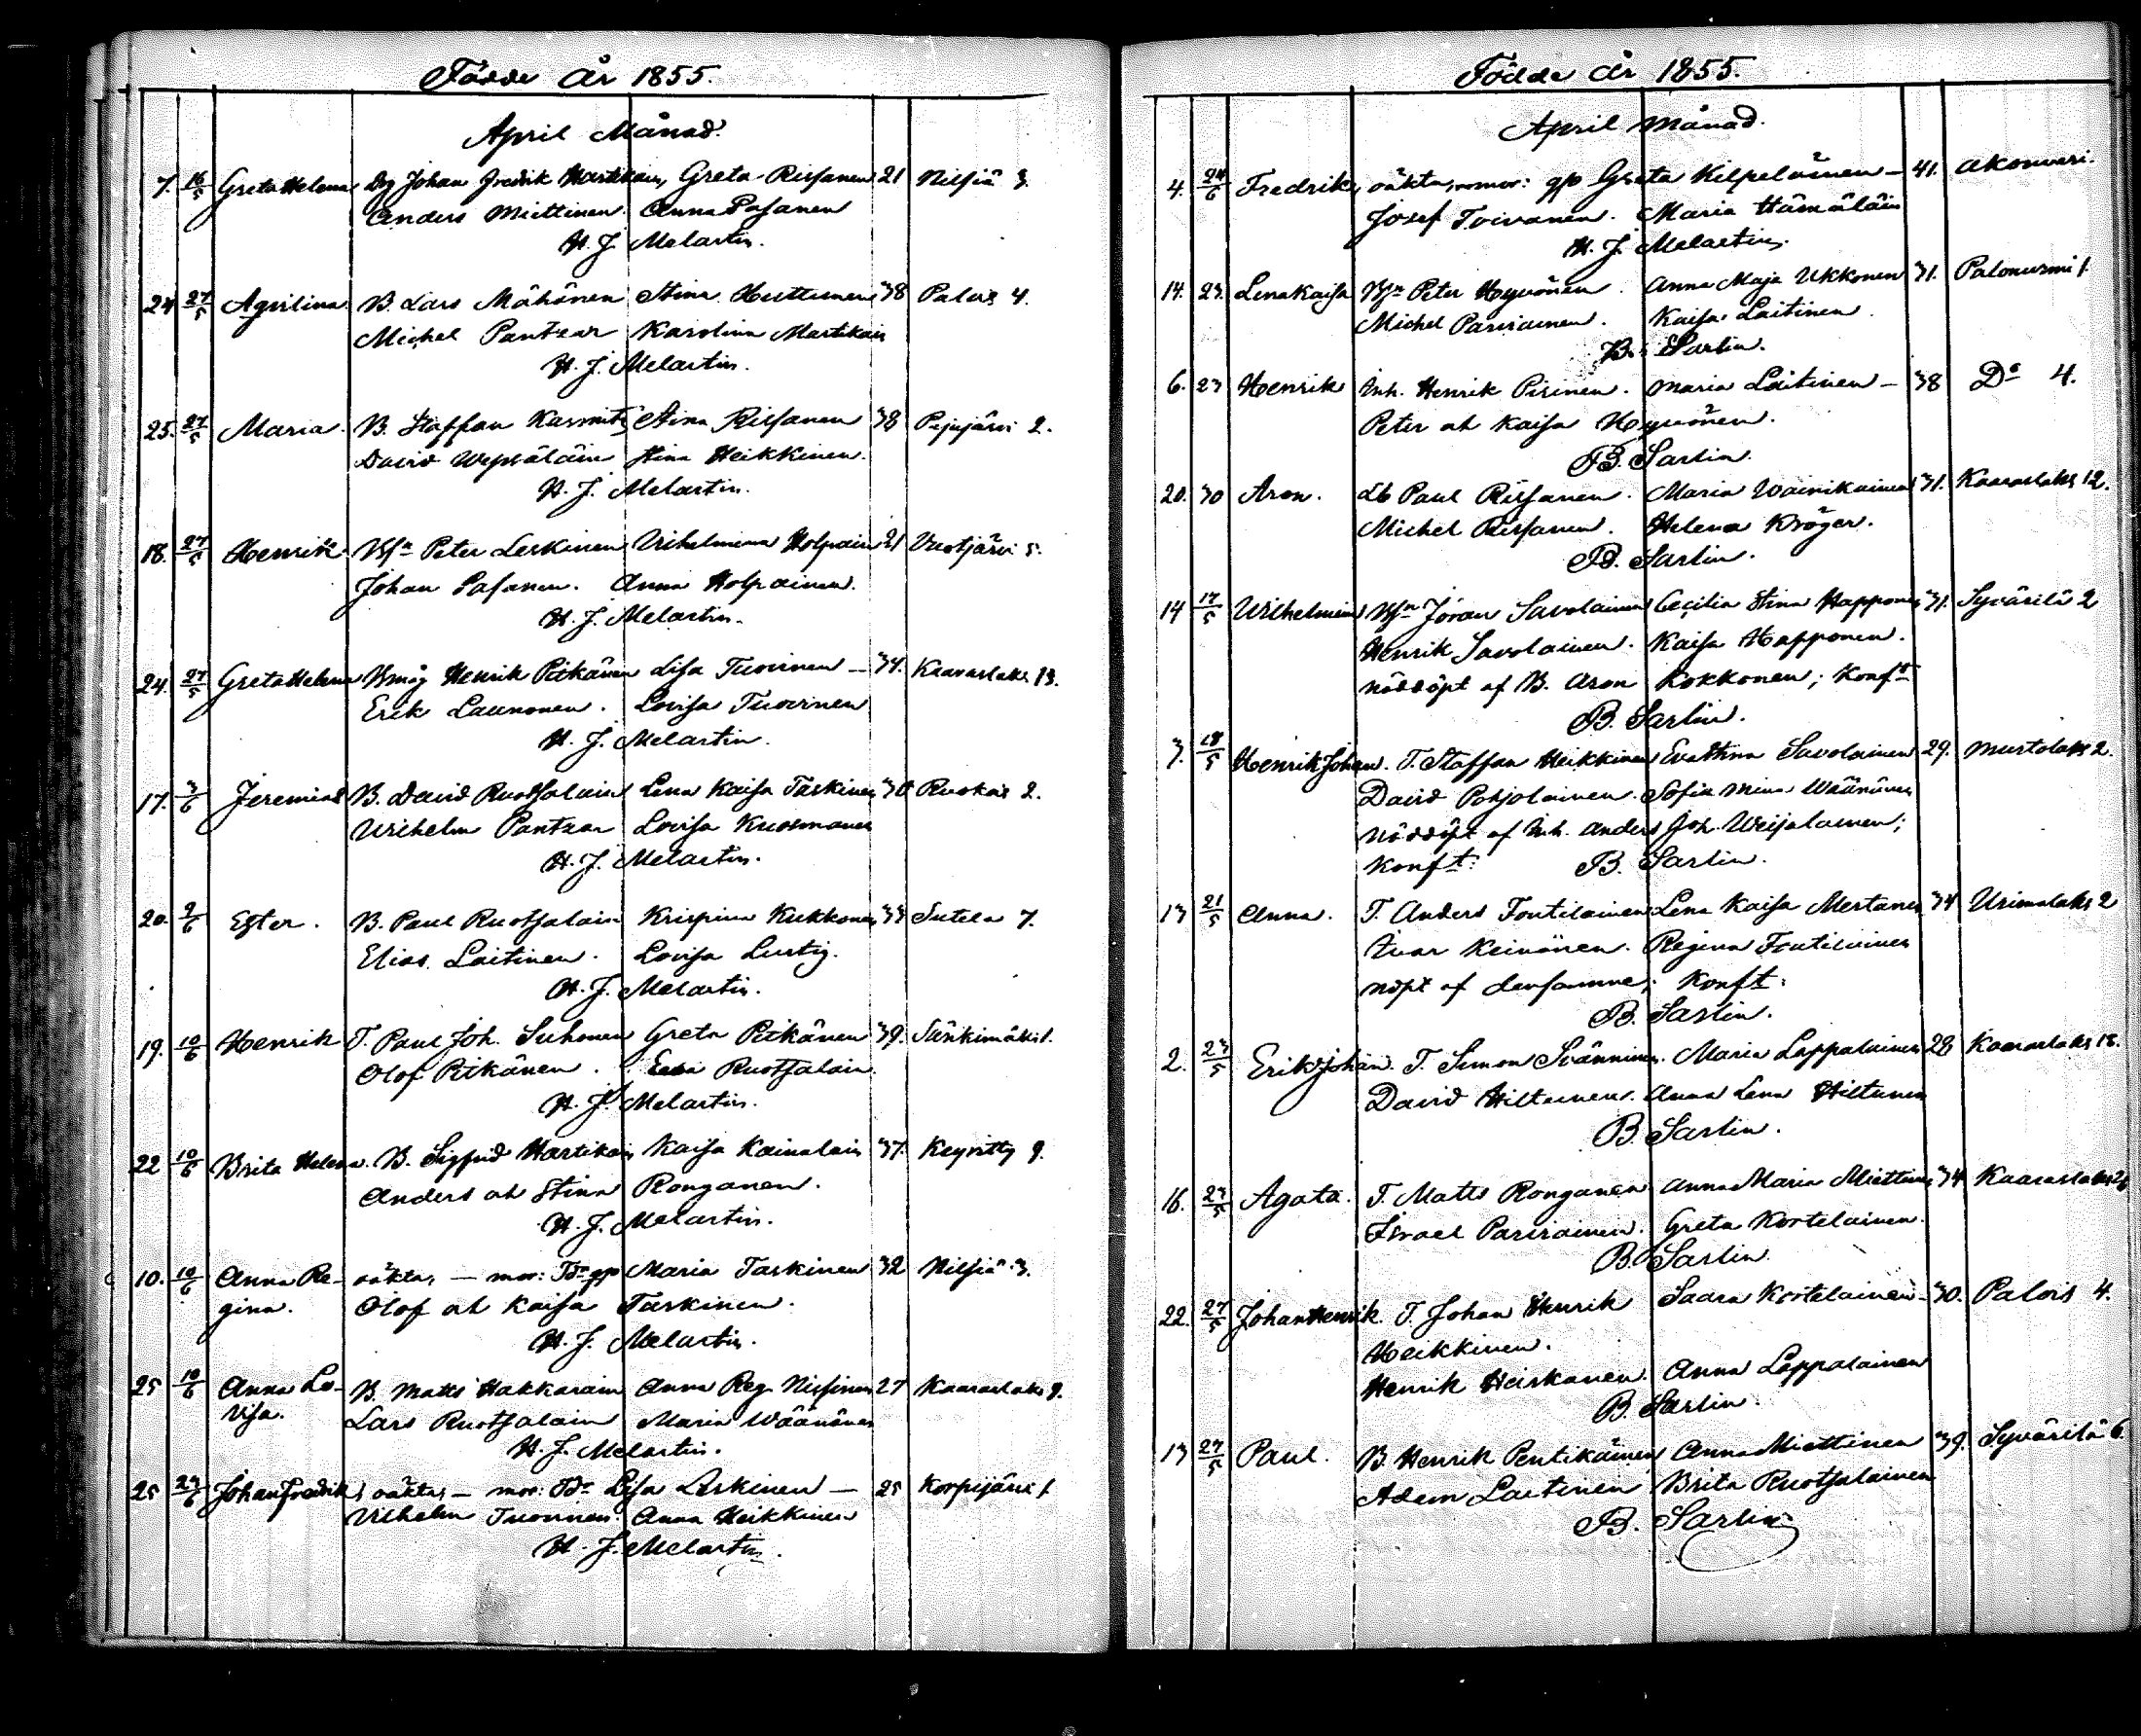 Födde År 1855.
April Månad.
7. 16/5 Greta Helena Drg Johan Fredrik Hartikain, Greta Rissanen 21 Nilsiä 3.
Anders Miettinen. Anna Pasanen
H. J. Melartin.
24 27/5 Agrilina B. Lars Mähönen Stina Huttunen 38 Palois 4.
Michel Pantzar Karolina Martikain
H. J. Melartin.
25. 27/5 Maria. B. Staffan Stina Rissanen 38 Pajujärvi 2.
David Wepsäläin Stina Heikkinen.
H. J. Melartin.
18. 27/5 Henrik. Bsn Peter Leskinen Vilhelmina Holpain 21 Vuotjärvi 5.
Johan Pasanen. Anna Holpainen.
H. J. Melartin.
24. 27/5 Greta Helena Bmåg Henrik Pitkänen Lisa Tuovinen — 34. Kaaraslaks 13.
Erik Launonen. Lovisa Tuovinen
H. J. Melartin.
17. 3/6 Jeremias B. David Ruotsalain Lena Kaisa Taskinen 30 Ruokois 2.
Wilhelm Pantzar Lovisa Kuosmanen
H. J. Melartin.
20. 9/6 Ester. B. Paul Ruotsalain Krispina Kukkonen 33 Sutela 7.
Elias Laitinen. Lovisa Lustig.
H. J. Melartin.
19. 10/6 Henrik T. Paul Joh. Suhonen Greta Pitkänen 39. Sänkimäki 1.
Olof Pitkänen. Eva Ruotsalain.
H. J. Melartin.
22 10/6 Brita Helena. B. Sigfrid Hartikain Kaisa Kainulain 37. Keyritty 9.
Anders ah Stina Ronganen.
H. J. Melartin.
10. 10/6 Anna Re- oäkta, — mor: Bdr gp Maria Taskinen 32 Nilsiä 3.
gina. Olof ah Kaisa Taskinen.
H. J. Melartin.
25 10/6 Anna Lo- B. Matts Hakkarain Anna Reg. Nissinen 27 Kaaraslaks 9.
visa. Lars Ruotsalain Maria Wäänänen
H. J. Melartin.
25 23/6 Johan Fredrik, oäkta, — mor: Bdr Lisa Leskinen — 25 Korpijärvi 1.
Vilhelm Tuovinen. Anna Heikkinen
H. J. Melartin.
Födde År 1855.
April Månad.
4. 24/6 Fredrik, oäkta, mor: gp Greta Kilpeläinen — 41. Akonvesi.
Josef Toivanen. Maria Hämäläin
H. J. Melartin.
14. 23. Lena Kaisa Bsn Peter Hyvönen. Anna Maja Ukkonen 31. Palonurmi 1.
Michel Parviainen. Kaisa Laitinen.
B. Sarlin.
6. 23 Henrik Inh. Henrik Pirinen. Maria Laitinen — 38 Do 4.
Peter ah Kaisa Hyvönen.
B. Sarlin.
20. 30 Aron. Lb Paul Rissanen. Maria Wainikainen 31. Kaaraslaks 12.
Michel Rissanen. Helena Kröger.
B. Sarlin.
14 17/5 Wilhelmina Bsn Jöran Savolainen Cecilia Stina Happonen 31. Syvärilä 2
Henrik Savolainen. Kaisa Happonen.
nöddöpt af B. Aron Kokkonen; Konft
B. Sarlin.
7. 18/5 Henrik Johan. T. Staffan Heikkinen Eva Stina Savolainen 29. Murtolaks 2.
David Pohjolainen. Sofia Mina Wäänänen
Nöddöpt af Inh. Anders Joh. Weijalainen;
Konft: B. Sarlin.
13 21/5 Anna. T. Anders Toutilainen Lena Kaisa Mertanen 34 Urimolaks 2
Ivar Keinänen. Regina Toutilainen
nöpt af densamme; Konft:
B. Sarlin.
2. 23/5 Erik Johan. T. Simon Svänninen. Maria Lappalainen 28 Kaaraslaks 18.
David Hiltunen. Anna Lena Hiltunen
B. Sarlin.
16. 23/5 Agata. T. Matts Ronganen Anna Maria Miettinen 34 Kaaraslaks 26
Israel Parviainen. Greta Kortelainen.
B. Sarlin.
22. 27/5 Johan Henrik. T. Johan Henrik Saara Kortelainen — 30. Palois 4.
Heikkinen.
Henrik Heiskanen. Anna Lappalainen
B. Sarlin.
13 27/5 Paul. B. Henrik Pentikäinen Anna Miettinen 39. Syvärilä 6.
Adam Laitinen Brita Ruotsalainen
B. Sarlin